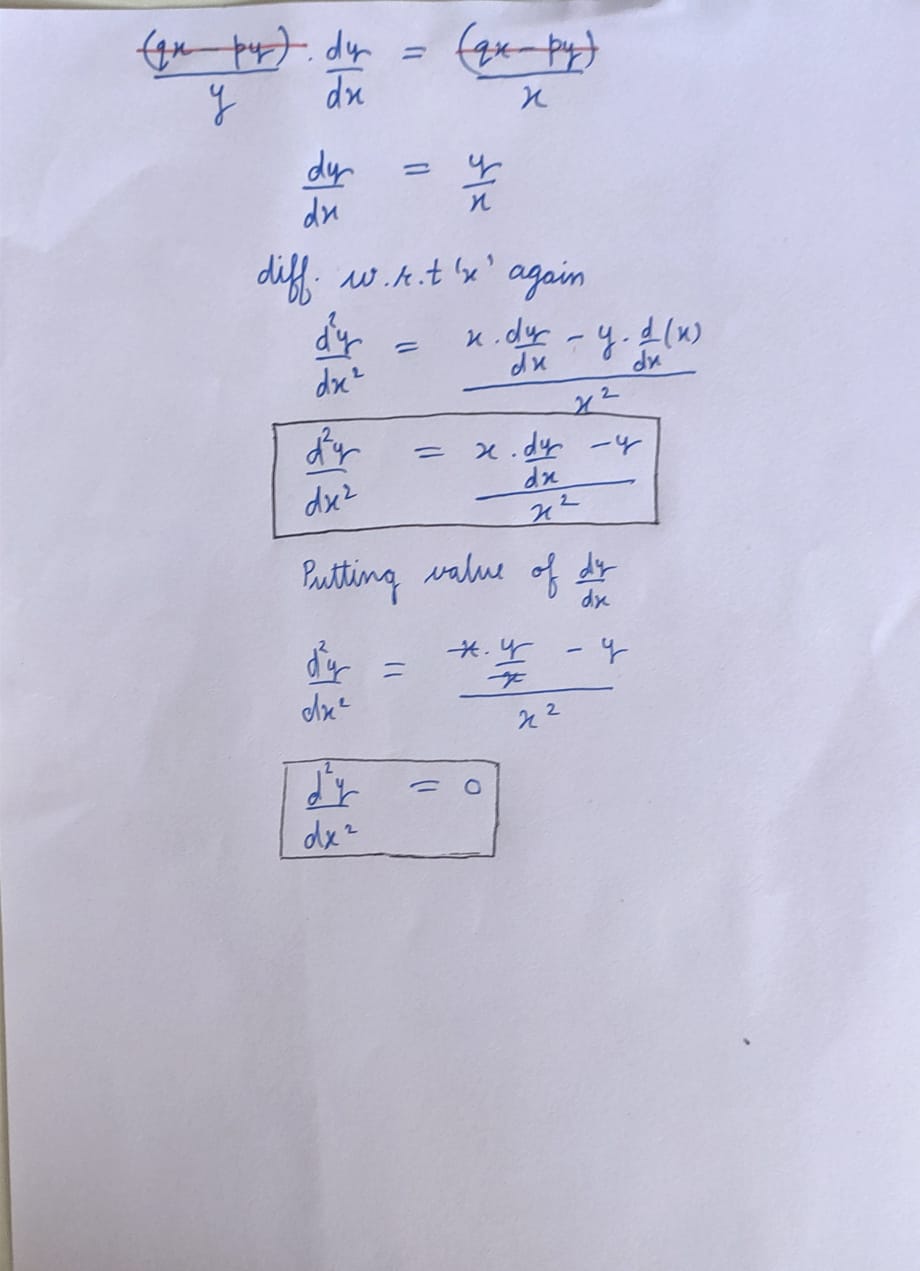 (qx - py)/y . dy/dx = (qx - py)/x
dy/dx = y/x
diff. w.r.t 'x' again
d²y/dx² = (x . dy/dx - y . d/dx (x))/x²
d²y/dx² = (x . dy/dx - y)/x²
Putting value of dy/dx
d²y/dx² = (x . y/x - y)/x²
d²y/dx² = 0